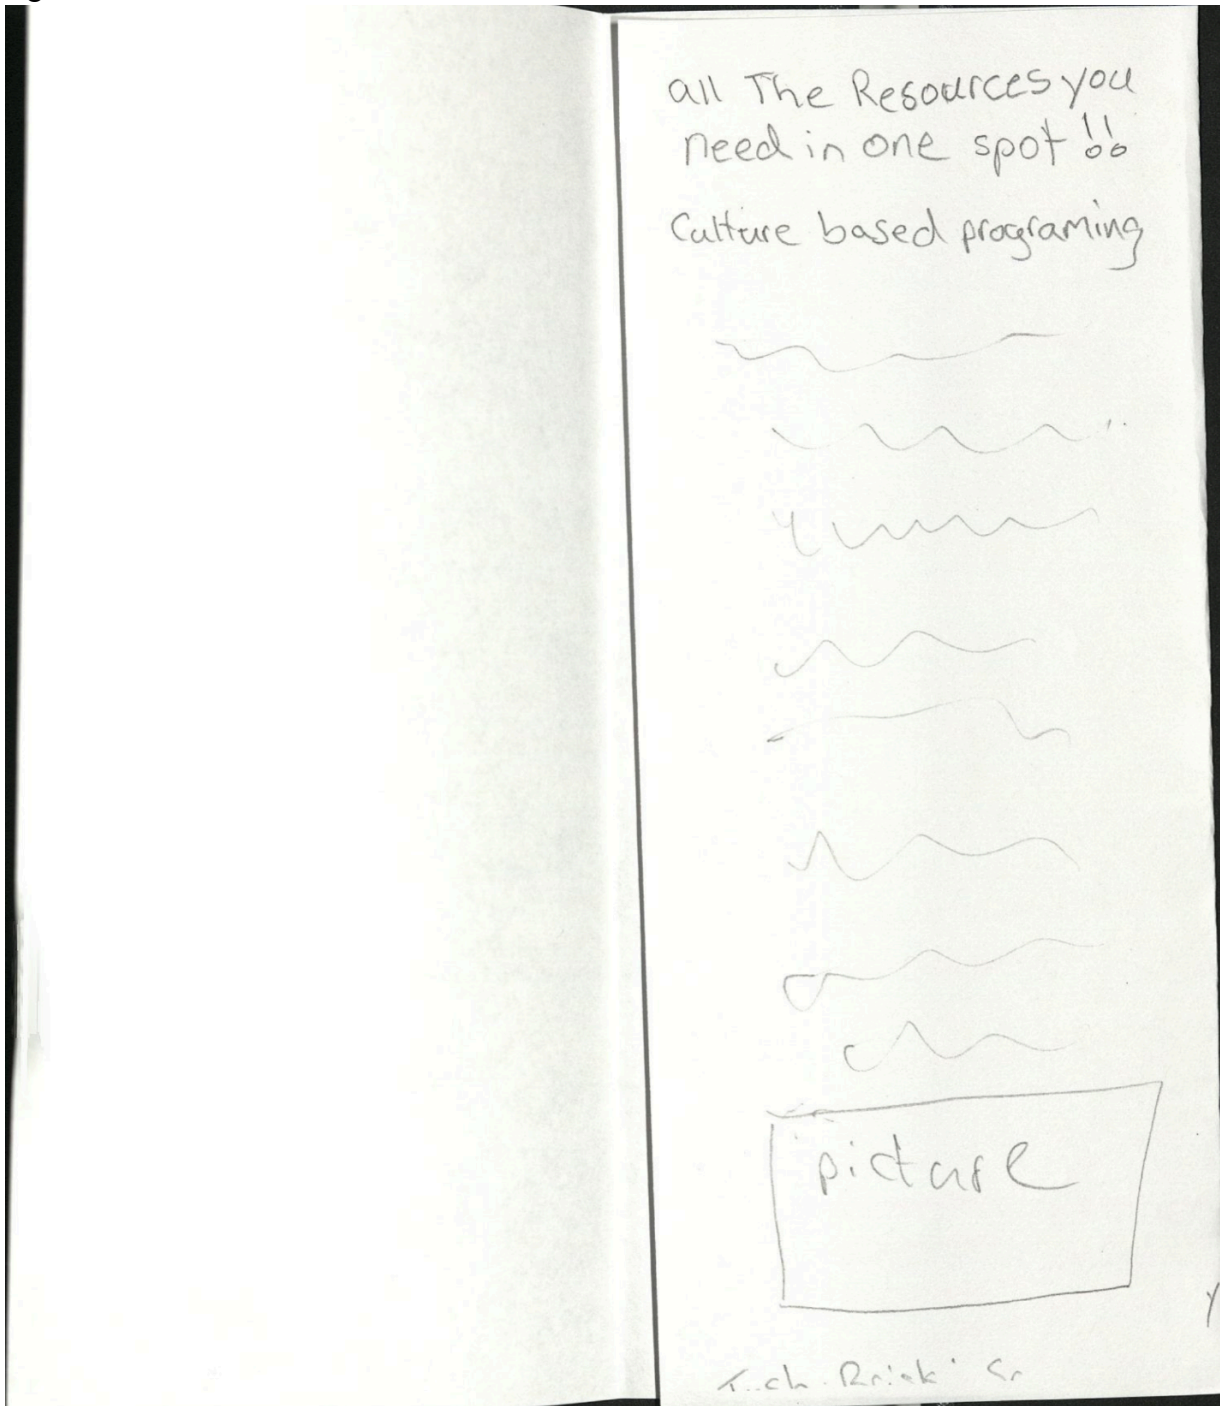 all The Resources you
need in one spot !!
Culture based programing
picture